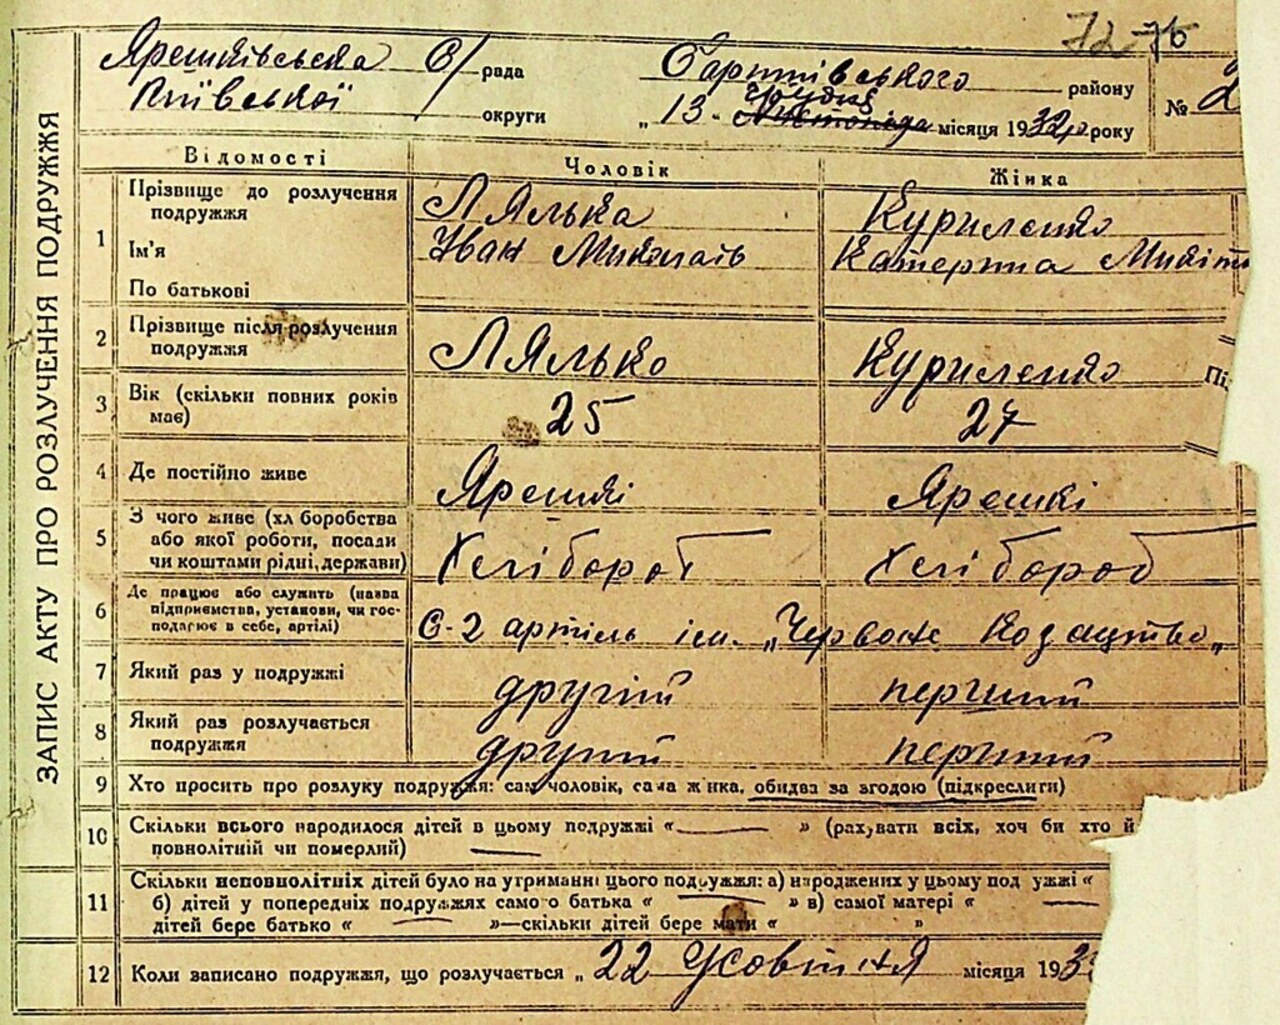 72 76
Ярешківська С/рада Бартківського району № 2
Київської округи грудня
„ 13 " Листопада місяця 1932 року
ЗАПИС АКТУ ПРО РОЗЛУЧЕННЯ ПОДРУЖЖЯ
Відомості Чоловік Жінка
1 Прізвище до розлучення подружжя Лялька Куриленко
Ім'я Іван Миколаїв Катерина Микит
По батькові
2 Прізвище після розлучення подружжя Лялько Куриленко Пі
3 Вік (скільки повних років має) 25 27
4 Де постійно живе Ярешкі Ярешкі
5 З чого живе (хл боробства
або якої роботи, посади
чи коштами рідні, держави) Хлібороб Хлібороб
6 Де працює або служить (назва
підприємства, установи, чи гос-
подарює в себе, артілі) С-2 артіль ім. „Червоне Козацтво„
7 Який раз у подружжі другий перший
8 Який раз розлучається подружжя другий перший
9 Хто просить про розлуку подружжя: сам чоловік, сама жінка, обидва за згодою (підкреслити)
10 Скільки всього народилося дітей в цьому подружжі « — » (рахувати всіх, хоч би хто й
повнолітній чи померлий) —
11 Скільки неповнолітніх дітей було на утриманні цього подружжя: а) народжених у цьому под ужжі «
б) дітей у попередніх подружжях самого батька « — » в) самої матері « —
дітей бере батько « — »—скільки дітей бере мати « »
12 Коли записано подружжя, що розлучається „ 22 Жовтня місяця 193